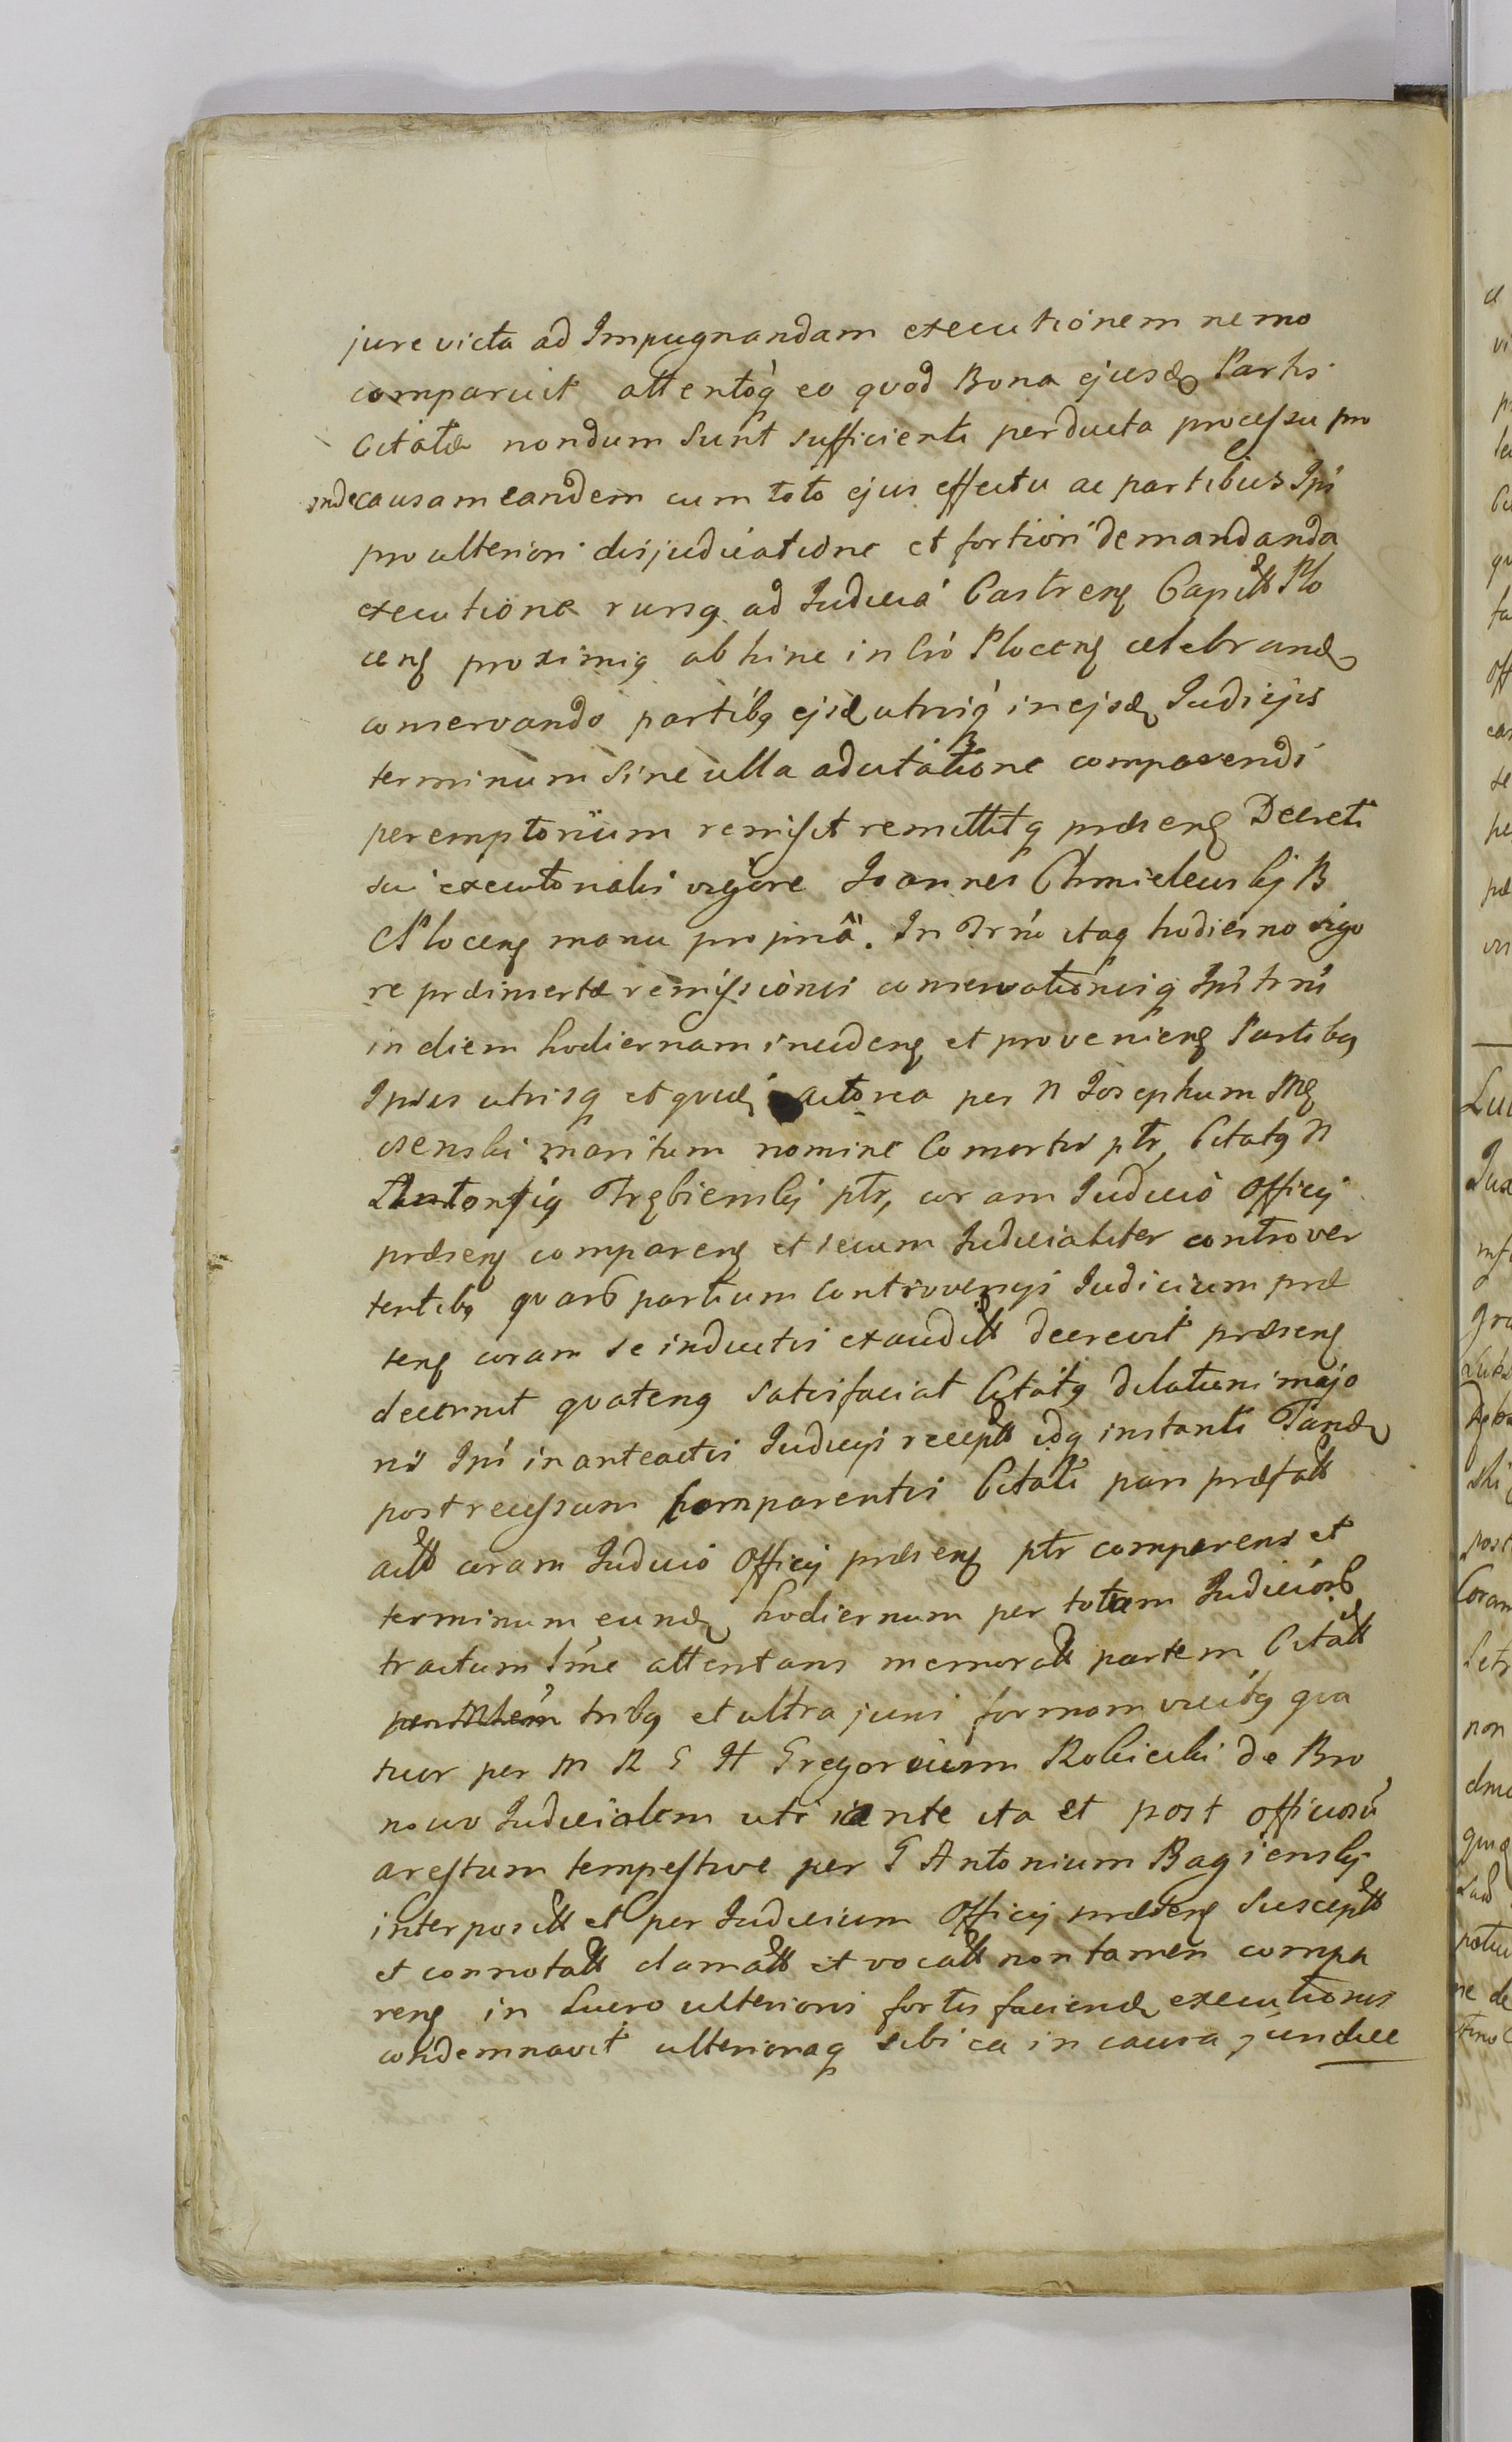 jure victa ad Impugnandam executionem nemo
comparuit attentoq̀ eo quod Bona ejusd Partis
Citatæ nondum sunt sufficienti perducta processu pro
inde causam eandem cum toto ejus effectu ac partibus Ipi
pro ulteriori disjudicatione et fortiori demandanda
executione rursq ad Judicia Castren Capitt Plo
cen proximiq abhinc in Cró Plocen celebrand
conservando partibq ejsd utrisq̀ in ejsd Judicijs
terminum sine ulla adcitatione comparendi
peremptorium remisit remittitq præsen Decreti
sui executorialis vigore Joannes Chmielewskj B
C Plocen manu propriâ. In Trńo itaq hodierno vigo
re præinsertæ remissionis conservationisq Ipi trńi
in diem hodiernam inciden et provenien Partibq
Ipius utrisq et quid actorea per N Josephum Mq
osenski maritum nomine Consortis ptr, Citatq N
Antoniq Trębienskj ptr, coram Judicio Officij
præsen comparen et secum Judicialiter controver
tentibq quarū partium controversijs Judicium præ
sen coram se inductis exauditt decrevit præsen
decernit quatenq satisfaciat Citatq dilationi majo
ris Ipi in anteactis Judicijs receptt idq instanti Tand
post recessum comparentis Citati pars præfatt
actt coram Judicio Officij præsen ptr comparens et
terminum eund hodiernum per totum Judiciorū
tractum lńme attentans memoratt partem Citatt
tribq et ultra juris formam vicibq qua
tuor per M R G H Gregorium Robicki de Bro
nowo Judicialem uti ante ita et post officiosú
arestum tempestive per G Antonium Bagienskj
interpositt et per Judicium Officij præsen susceptt
et connotatt clamatt et vocatt non tamen compa
ren in Lucro ulterioris fortis faciend executionis
condemnavit ulterioraq sibi ea in causa jundicc